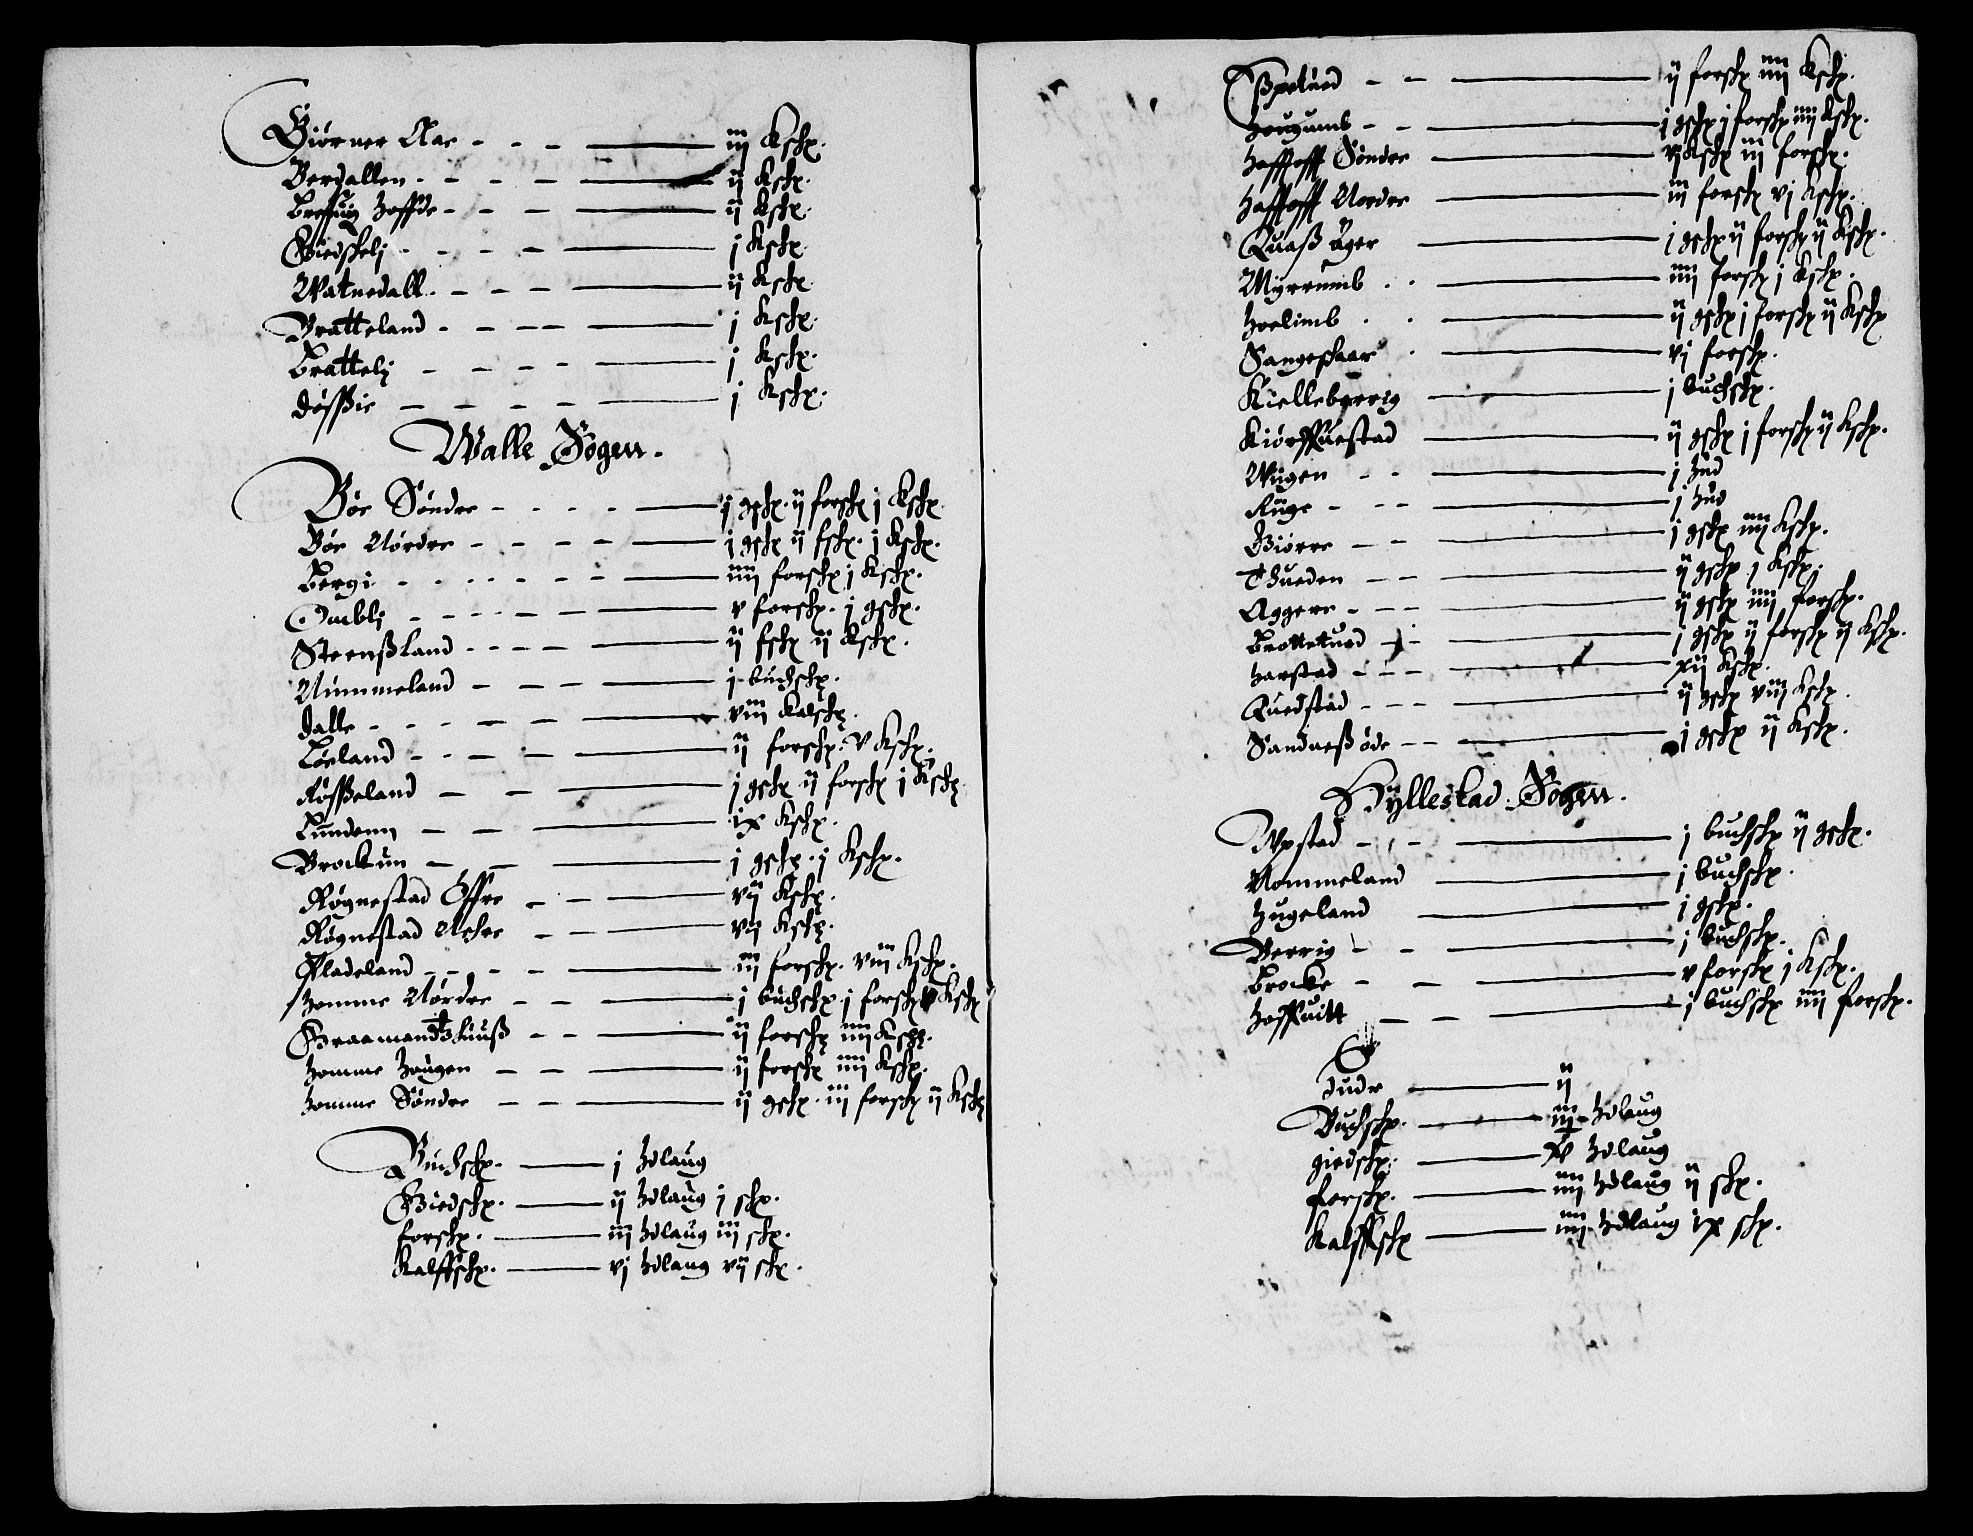 Biørner Aae - - - iij Kschɳ.
Berdallen - - - - ij Kschɳ.
Brefuig Hoffde - - - ij Kschɳ.
Giedskelj - - - - j Kschɳ
Watnedall - - - - ij Kschɳ
Bratteland - - - - j Kschɳ.
Brattelj - - - - j Kschɳ.
døssie - - - - j Kschɳ.
Walle Sogen.
Bøe Søndre - - - - j gschɳ. ij forschɳ j Kschɳ
Bøe Nørdre - - - - j gschɳ ij fschɳ. j Kschɳ.
Bergi - - - - - - iiij forschɳ j Kschɳ.
Omblj - - - - - v forschɳ. j gschɳ.
Steenßland - - - - ij fschɳ ij Kschɳ.
Nummeland - - - j buchschɳ.
dalle - - - - - viij Kalschɳ.
Løeland - - - - ij forschɳ. v Kschɳ.
Røsßeland - - j gschɳ ij forschɳ j Kschɳ
Lundenn - - ix Kschɳ.
Brockun - - j gschɳ. j Kschɳ.
Røgnestad Øffre - - vij Kschɳ.
Røgnestad Nehre - - vij Kschɳ.
Fladeland - - - - iij forschɳ. viij Kschɳ.
Homme Nørdre - - j buchschɳ j forschɳ v Kschɳ
Graamandtzhuuß - - ij forschɳ iiij Kschɳ.
Homme Hougen - - ij forschɳ iiij Kschɳ.
Homme Søndre - - ij gschɳ. iij forschɳ ij Kschɳ
Buchschɳ. j Hdlaug
Giedschɳ. ij Hdlaug j schɳ.
forschɳ. iij Hdlaug iij schɳ.
Kalffschɳ. vj Hdlaug vij schɳ.
- - ij forschɳ iiij Kschɳ.
Hougumb - - j gschɳ j forschɳ iiij Kschɳ.
Haffstoff Søndre vj Kschɳ iij forschɳ.
Haffstoff Nordre iij forschɳ vj Kschɳ.
Quaß ager j gschɳ ij forschɳ ij Kschɳ.
Myrrumb - - iiij forschɳ j Kschɳ.
Hoelimb - - ij gschɳ j forschɳ ij Kschɳ
Sangeskaar - vj forschɳ.
Kielleberrig j buchschɳ.
Kiørffuestad ij gschɳ j forschɳ ij Kschɳ.
Wiigen - - j Hud
Rüge - - - j Hud
Biørre - - j gschɳ iiij Kschɳ.
Thueden - - ij gschɳ j Kschɳ.
Aggere - - - ij gschɳ iiij forschɳ.
Brottetued - - j gschɳ ij forschɳ ij Kschɳ.
Harstad - - - xij Kschɳ.
Quedstad - - - ij gschɳ viij Kschɳ.
Sandneß øde - - j gschɳ ij Kschɳ.
Hyllestad Sogen.
Opstad - - - j buchschɳ ij gschɳ.
Nommeland j buchschɳ.
Hugeland j gschɳ.
Berrig - - j buchschɳ.
Brocke - - v forschɳ j Kschɳ.
Hoffuitt - - j buchschɳ iiij forschɳ.
ij
Buchschɳ. iij Hdlaug
giedschɳ. Hdlaug
forschɳ. iiij Hdlaug ij schɳ.
Kalffschɳ iiij Hdlaug ix schɳ.